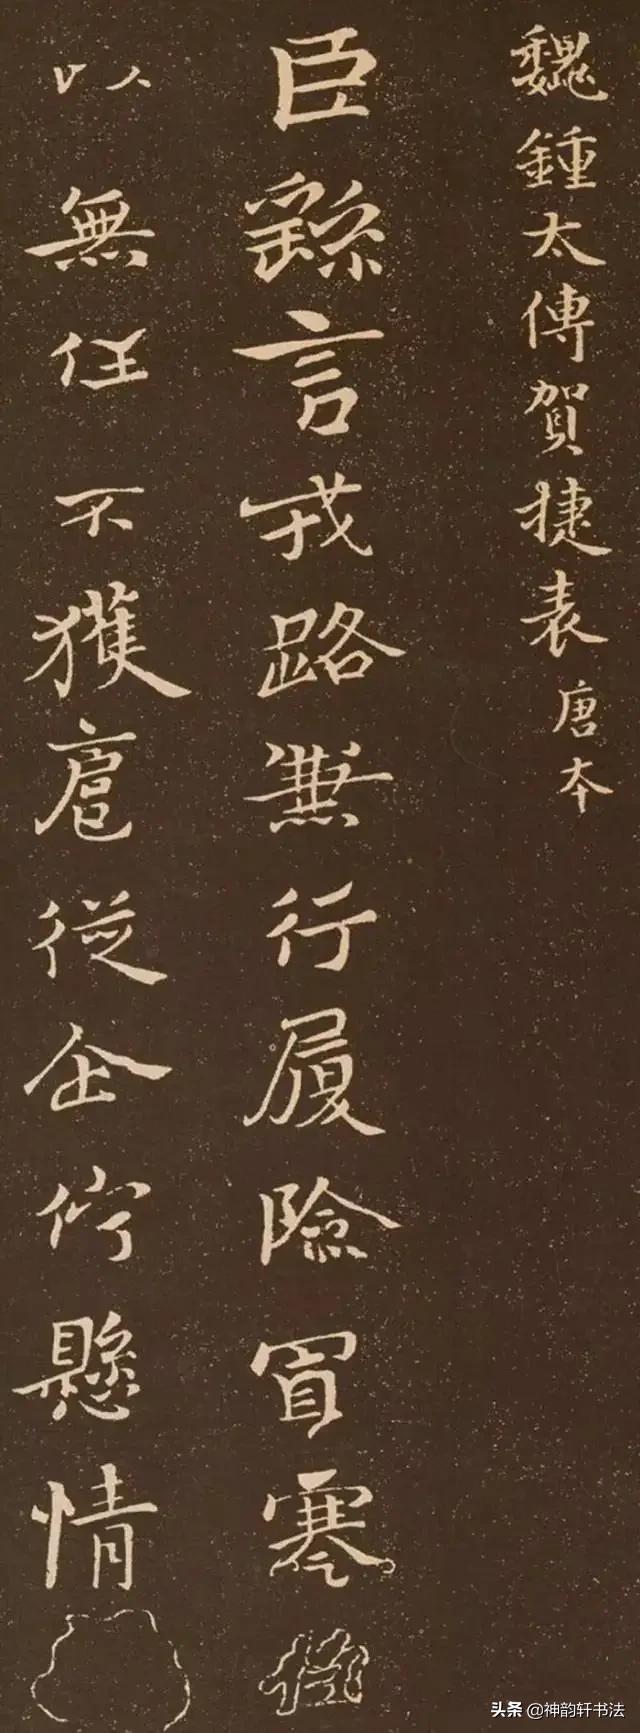 魏鍾太傅賀捷表唐本
臣繇言戎路兼行履險冒寒
以無任不獲扈從企佇懸情
头条 @神韵轩书法